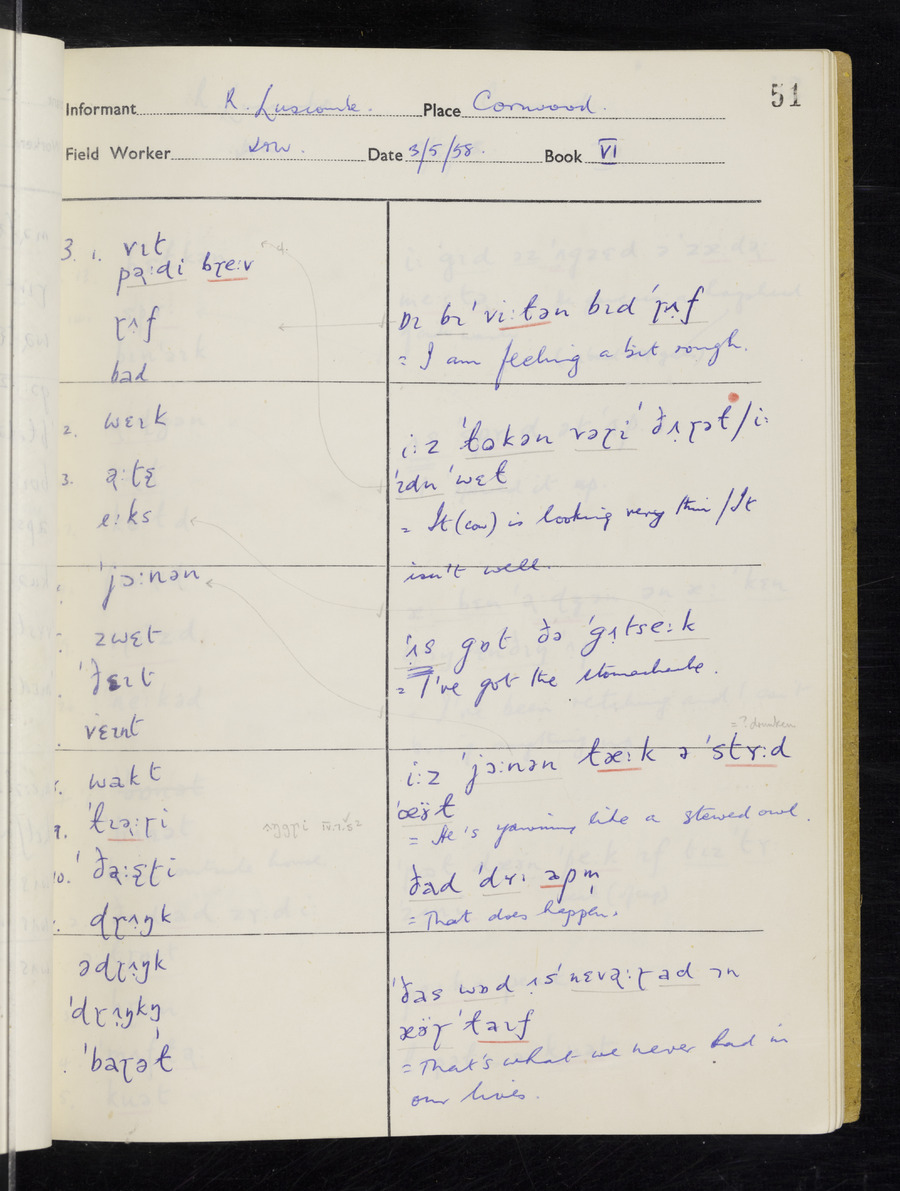 51
Informant R. Luscombe. Place Cornwood.
Field Worker Date 3/5/58. Book VI
3. 1. vɪt
pə̨ːdi bɽeːv
ɽʌ̣f
bad
2. wɛɪk
3.
eːks
ˈjɔːnən
zwɛt
vɛɪnt
8. wakt
9.
10.
dɽʌ̣ŋk
ədɽʌ̣ŋk
ˈdɽʌ̣ŋkŋ
ˈbaɽət
ɒɪ bɪ ˈviːtən bɪd ˈɽʌ̣f
= I am feeling a bit rough.
iːz ˈtɒkən vəɽi ˈðʌ̣ɽət / iː
ˈɪdn ˈwɛt
= It (cow) is looking very thin / It
isn't well.
ˈʌ̣s gɒt ðə ˈgʌ̣tseːk
= I've got the stomachache.
= ? drunken
iːz ˈjɔːnən tæːk ə ˈstʏːd
ˈœÿt
= He's yawning like a stewed owl.
ðad ˈdʏː æpm̩
= That does happen.
ˈðas wɒd ʌ̣s ˈnɛvə̨ːɽ ad ɔn
æÿɽ ˈtaɪf
= That's what we never had in
our lives.